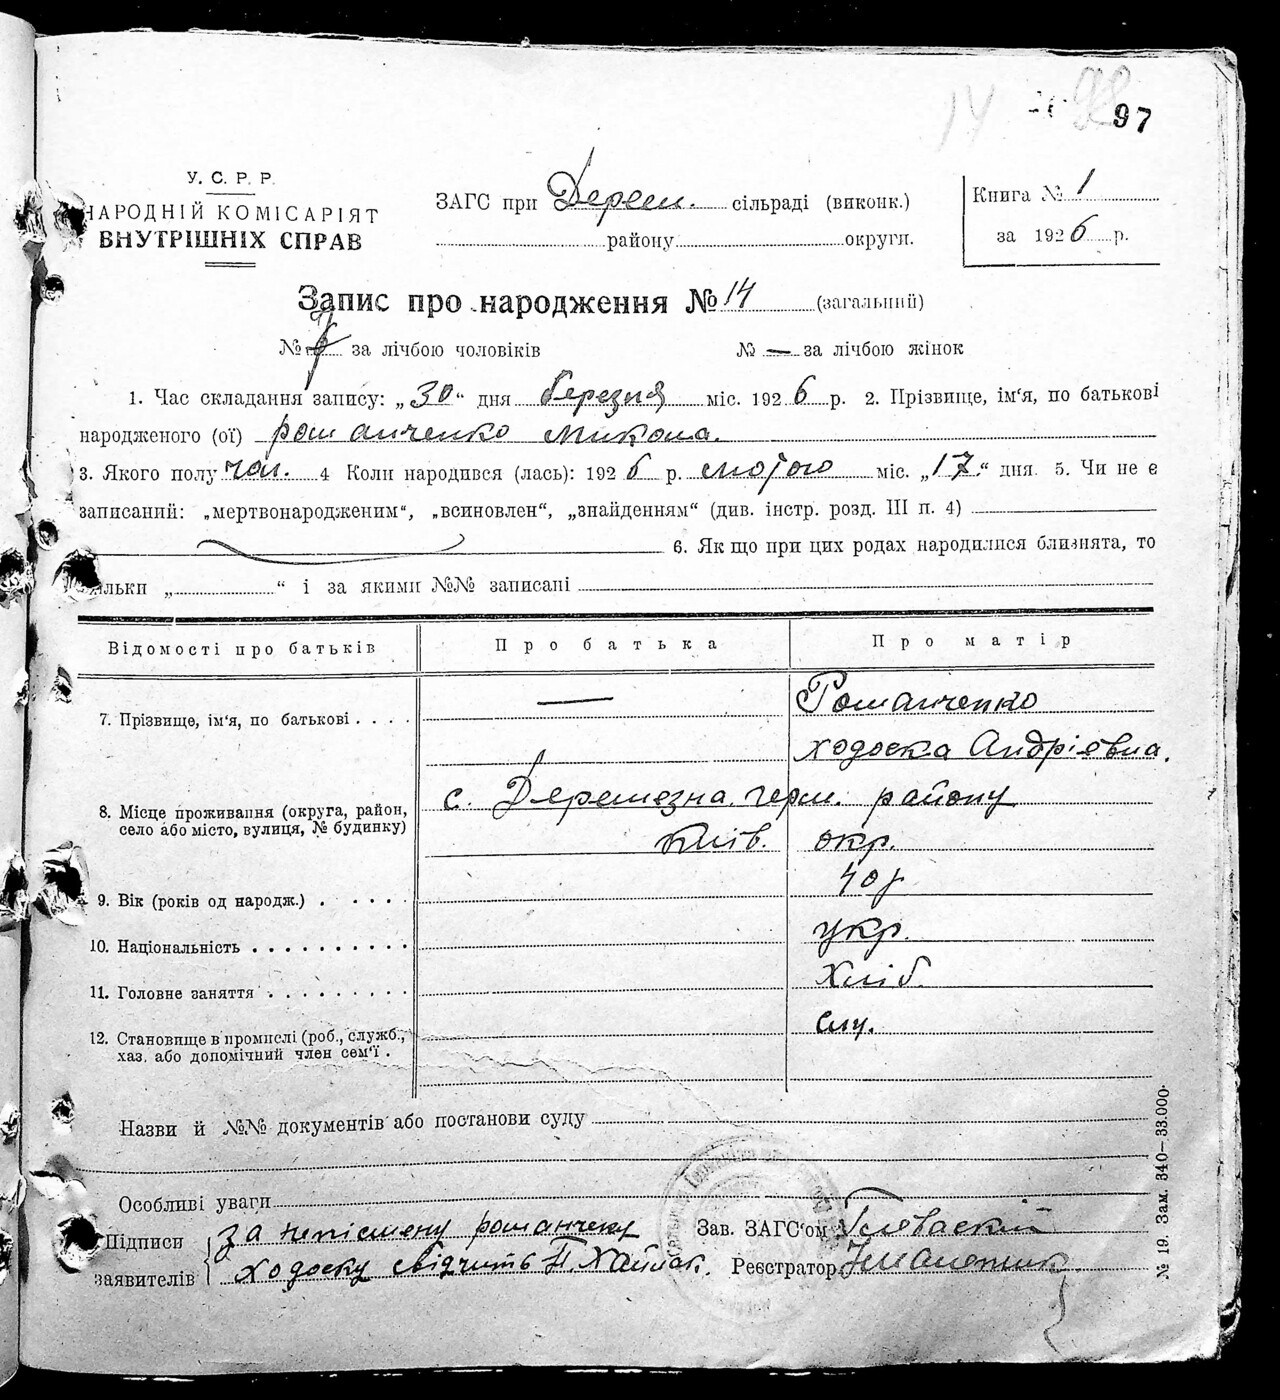 14 98 97
У. С. Р. Р.
НАРОДНІЙ КОМІСАРІЯТ
ВНУТРІШНІХ СПРАВ
ЗАГС при Дерем. сільраді (виконк.)
району округи.
Книга № 1
за 1926 р.
Запис про народження № 14 (загальний)
№ за лічбою чоловіків № — за лічбою жінок
1. Час складання запису: „30“ дня березня міс. 1926 р. 2. Прізвище, ім'я, по батькові
народженого (ої) Романченко Микола.
3. Якого полу чол. 4 Коли народився (лась): 1926 р. лютого міс. „17“ дня. 5. Чи не є
записаний: „мертвонародженим“, „всиновлен“, „знайденням“ (див. інстр. розд. III п. 4)
6. Якщо при цих родах народилися близнята, то
кільки „ “ і за якими №№ записані
Відомості про батьків Про батька Про матір
7. Прізвище, ім'я, по батькові . . . . — Романченко
Ходоска Андріевна.
8. Місце проживання (округа, район, с. Деремезна. герм. району
село або місто, вулиця, № будинку) Київ. окр.
9. Вік (років од народж.) . . . . . 40 р
10. Національність . . . . . . . . . . укр.
11. Головне заняття . . . . . . . . . Хліб.
12. Становище в промислі (роб., служб.,
хаз. або допомічний член сем'ї .
Назви й №№ документів або постанови суду
Особливі уваги
Підписи за неписмену романченку Зав. ЗАГС'ом
заявителів Ходоску свідчить П. Хаймак. Реєстратор
№ 19. Зам. 340—33.000.